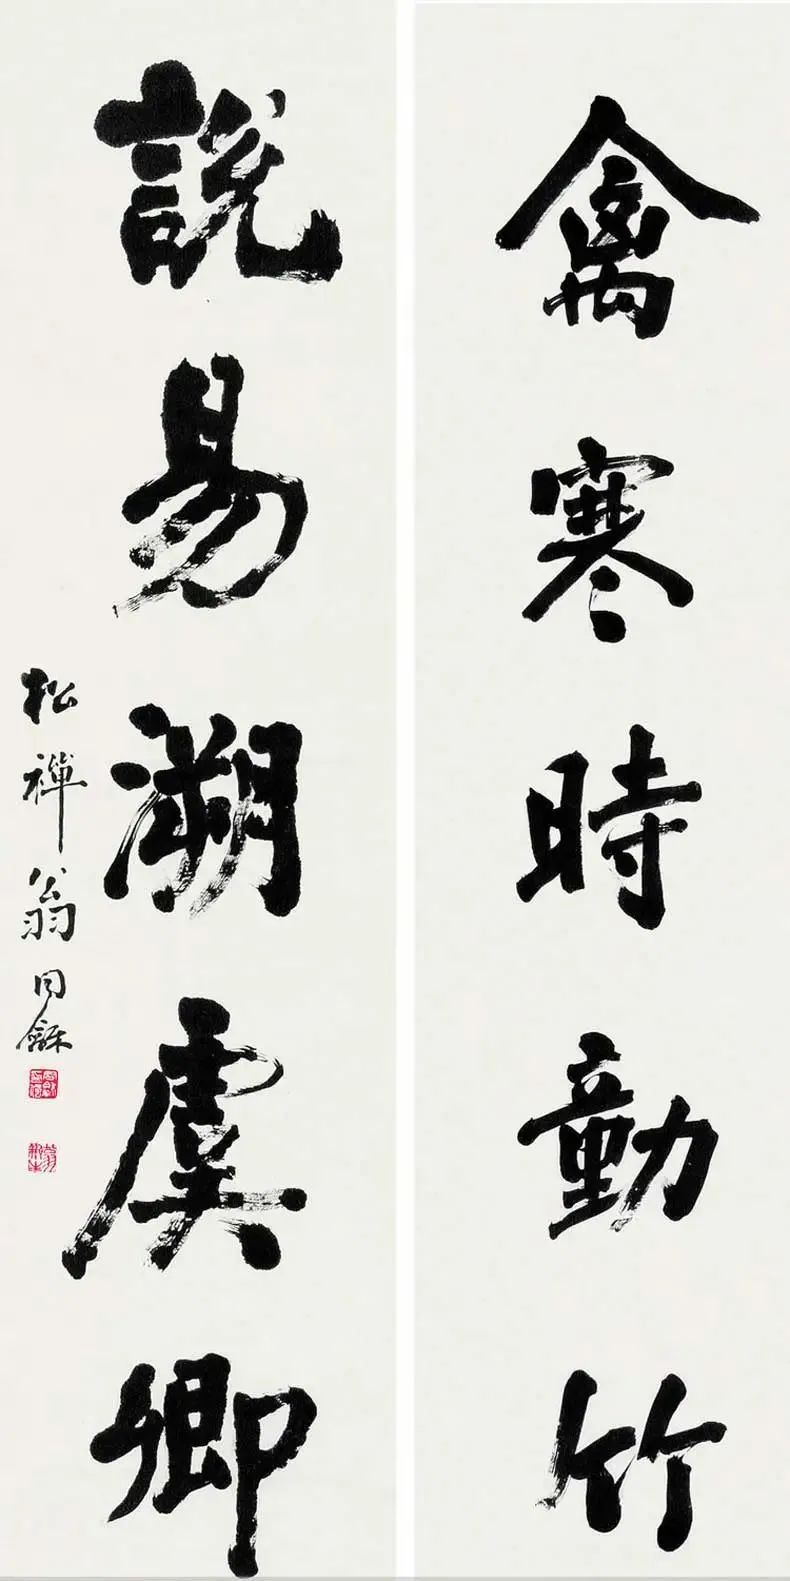 禽寒時動竹
說易溯虞卿
松禪翁同龢